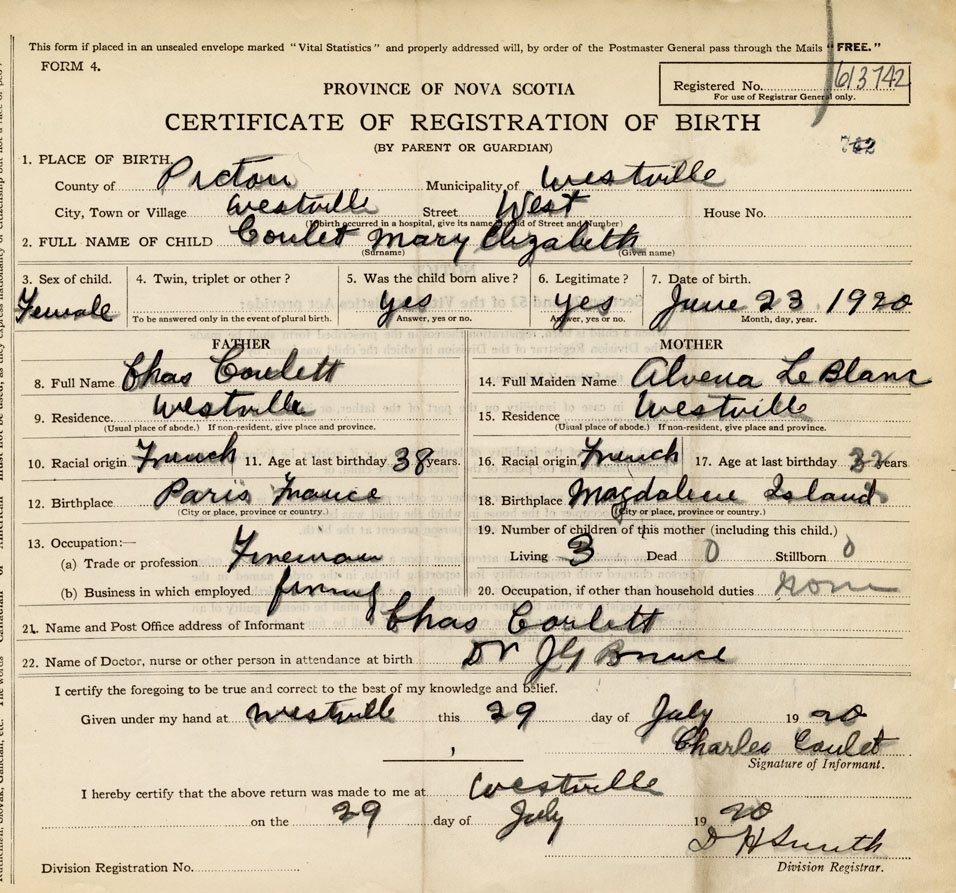 This form if placed in an unsealed envelope marked "Vital Statistics" and properly addressed will, by order of the Postmaster General pass through the Mails "FREE."
FORM 4.
Registered No. 613742
For use of Registrar General only.
PROVINCE OF NOVA SCOTIA
CERTIFICATE OF REGISTRATION OF BIRTH
(BY PARENT OR GUARDIAN)
1. PLACE OF BIRTH.
County of Pictou Municipality of Westville
City, Town or Village Westville Street West House No.
(If birth occurred in a hospital, give its name instead of Street and Number)
2. FULL NAME OF CHILD Coulet Mary Elizabeth
(Surname) (Given name)
3. Sex of child. 4. Twin, triplet or other? 5. Was the child born alive? 6. Legitimate? 7. Date of birth.
Female yes yes June 23 1920
To be answered only in the event of plural birth. Answer, yes or no. Answer, yes or no. Month, day, year.
FATHER MOTHER
8. Full Name Chas Coulett 14. Full Maiden Name Alvena Le Blanc
9. Residence. Westville 15. Residence Westville
(Usual place of abode.) If non-resident, give place and province. (Usual place of abode.) If non-resident, give place and province.
10. Racial origin French 11. Age at last birthday 38 years. 16. Racial origin French 17. Age at last birthday years
12. Birthplace Paris France 18. Birthplace Magdalene Island
(City or place, province or country.) (City or place, province or country.)
13. Occupation:— 19. Number of children of this mother (including this child.)
(a) Trade or profession Fireman Living 3 Dead 0 Stillborn 0
(b) Business in which employed firing 20. Occupation, if other than household duties none
21. Name and Post Office address of Informant Chas Coulett
22. Name of Doctor, nurse or other person in attendance at birth Dr J G Bruce
I certify the foregoing to be true and correct to the best of my knowledge and belief.
Given under my hand at Westville this 29 day of July 19 20
Charles Coulet
Signature of Informant.
I hereby certify that the above return was made to me at Westville
on the 29 day of July 19 20
D H Smith
Division Registrar.
Division Registration No.